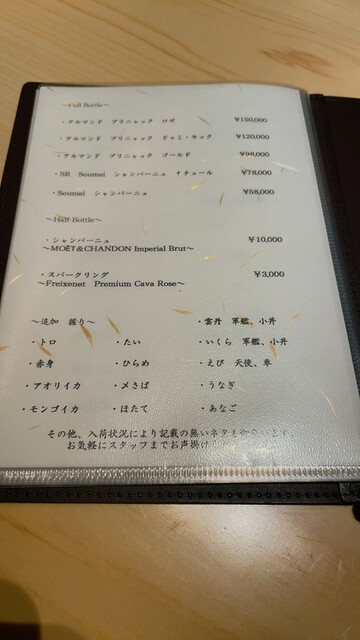 ~Full Bottle~
・アルマンド ブリニャック ロゼ ¥150,000
・アルマンド ブリニャック ドゥミ・セック ¥120,000
・アルマンド ブリニャック ゴールド ¥98,000
・SR Soumei シャンパーニュ ナチュール ¥78,000
・Soumei シャンパーニュ ¥58,000
~Half Bottle~
・シャンパーニュ ¥10,000
~MOËT&CHANDON Imperial Brut~
・スパークリング ¥3,000
~Freixenet Premium Cava Rose~
~追加 握り~ ・雲丹 軍艦、小丼
・トロ ・たい ・いくら 軍艦、小丼
・赤身 ・ひらめ ・えび 天使、車
・アオリイカ ・〆さば ・うなぎ
・モンゴイカ ・ほたて ・あなご
その他、入荷状況により記載の無いネタも
お気軽にスタッフまでお声掛け